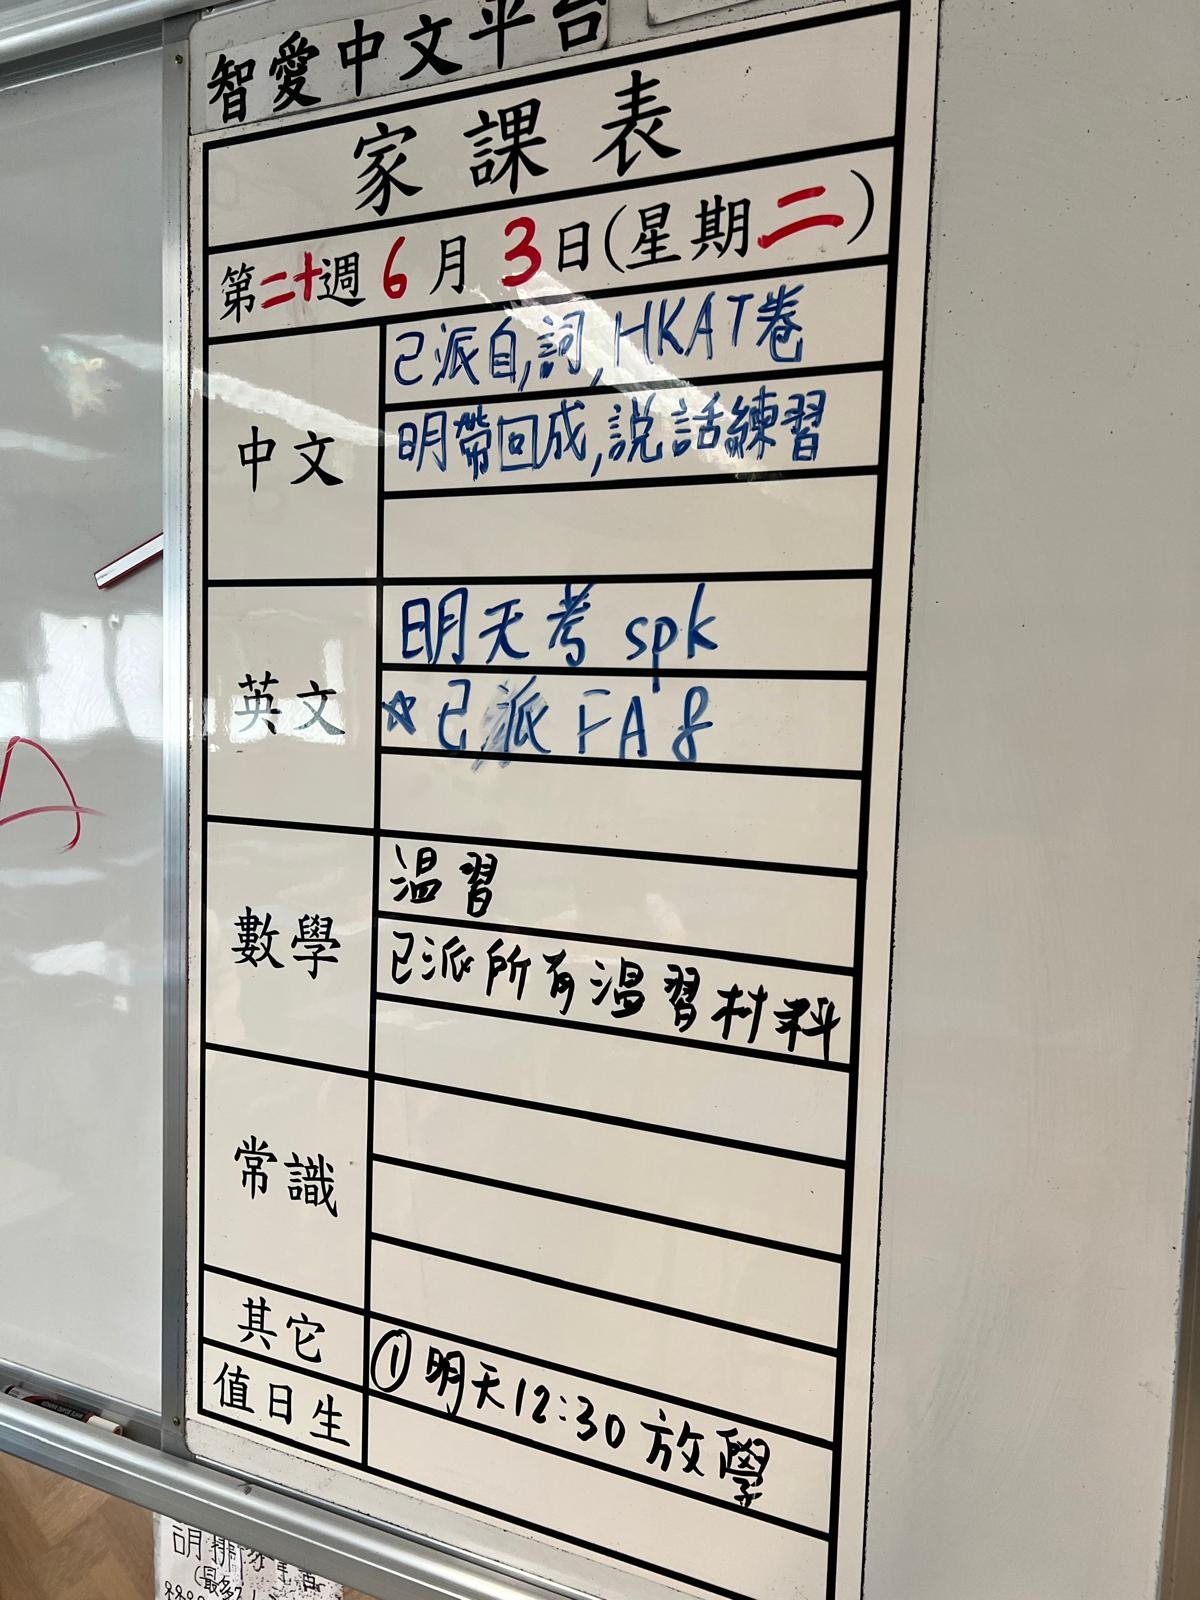 智愛中文平台
家課表
第二十週 6月3日(星期二)
中文
已派自,詞,HKAT卷
明帶回成,説話練習
英文
明天考 spk
☆已派 FA 8
數學
温習
已派所有温習材料
常識
其它
①明天12:30放學
值日生
A